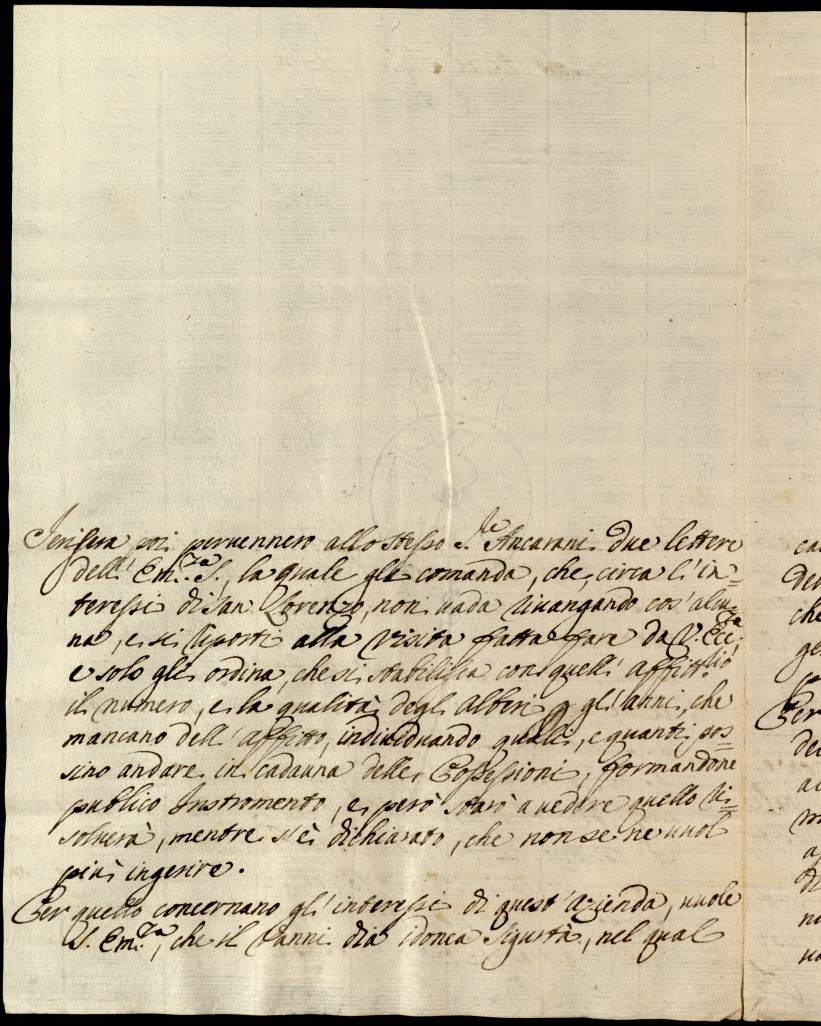 Jerisera poi peruennero allo stesso S.le Ancarani due lettere
dell' Em.za S., la quale gli comanda, che, circa l'in=
teressi di San Lorenzo, non uada riuangando cos' alcu=
na, e si riporti alla visita fatta fare da V. Ecc.za
e solo gli ordina, che si stabilisca con quell' affitt.rio
il numero, e la qualità degl' Alberi p gl' anni, che
mancano dell' affitto, indiuiduando quali, e quanti pos=
sino andare in cadauna delle Possessioni, formandone
publico Instromento, e però starò a uedere quello ri=
soluerà, mentre s'è dichiarato, che non se ne uuol
più ingerire.
Per quello concernano gl' interessi di quest' azienda, uuole
S. Em.za, che il Vanni dia idonea Sigurtà, nel qual
ca
de
che
ge
p
Per
de
a
m
a
di
n
uo